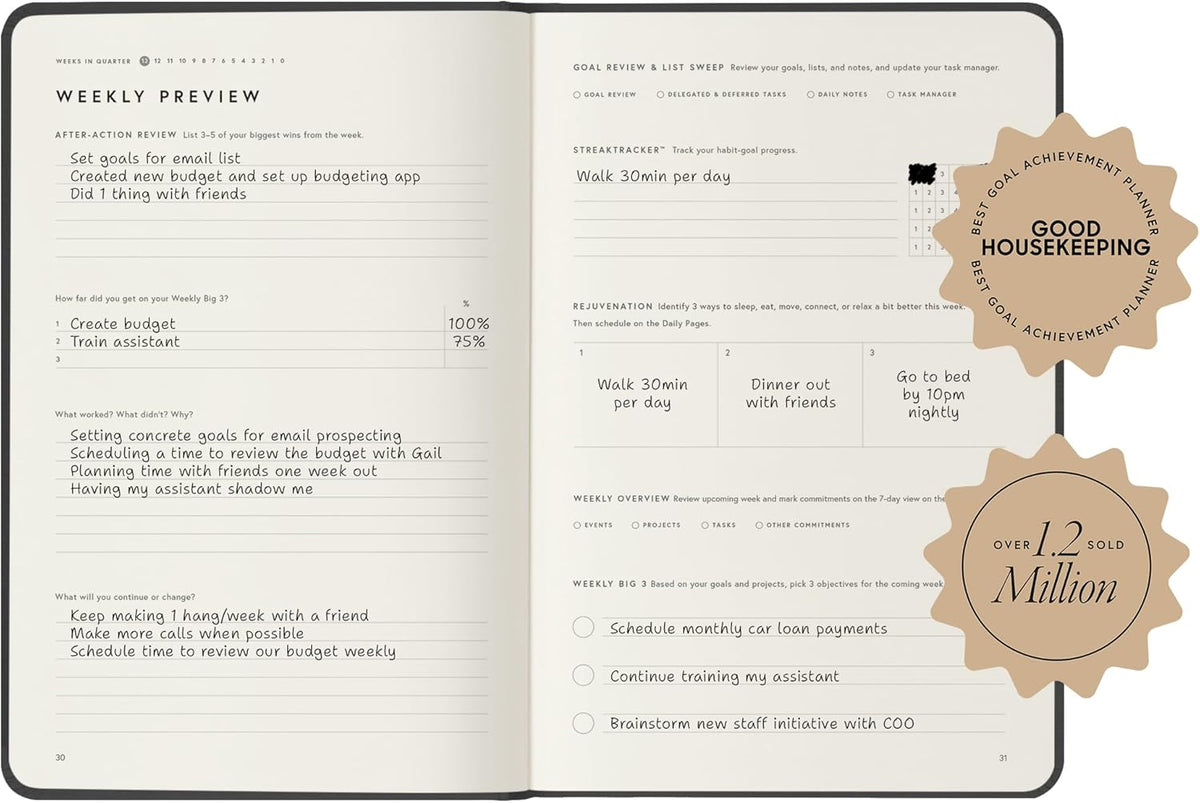 WEEKS IN QUARTER 13 12 11 10 9 8 7 6 5 4 3 2 1 0
WEEKLY PREVIEW
AFTER-ACTION REVIEW List 3–5 of your biggest wins from the week.
Set goals for email list
Created new budget and set up budgeting app
Did 1 thing with friends
How far did you get on your Weekly Big 3?
%
1 Create budget 100%
2 Train assistant 75%
3
What worked? What didn't? Why?
Setting concrete goals for email prospecting
Scheduling a time to review the budget with Gail
Planning time with friends one week out
Having my assistant shadow me
What will you continue or change?
Keep making 1 hang/week with a friend
Make more calls when possible
Schedule time to review our budget weekly
30
GOAL REVIEW & LIST SWEEP Review your goals, lists, and notes, and update your task manager.
GOAL REVIEW DELEGATED & DEFERRED TASKS DAILY NOTES TASK MANAGER
STREAKTRACKER™ Track your habit-goal progress.
Walk 30min per day
3
1 2 3 4
1 2 3
1 2
1 2 3
REJUVENATION Identify 3 ways to sleep, eat, move, connect, or relax a bit better this week.
Then schedule on the Daily Pages.
1
Walk 30min
per day
2
Dinner out
with friends
3
Go to bed
by 10pm
nightly
WEEKLY OVERVIEW Review upcoming week and mark commitments on the 7-day view on the
EVENTS PROJECTS TASKS OTHER COMMITMENTS
WEEKLY BIG 3 Based on your goals and projects, pick 3 objectives for the coming week
Schedule monthly car loan payments
Continue training my assistant
Brainstorm new staff initiative with COO
31
BEST GOAL ACHIEVEMENT PLANNER
GOOD
HOUSEKEEPING
BEST GOAL ACHIEVEMENT PLANNER
OVER 1.2 SOLD
Million